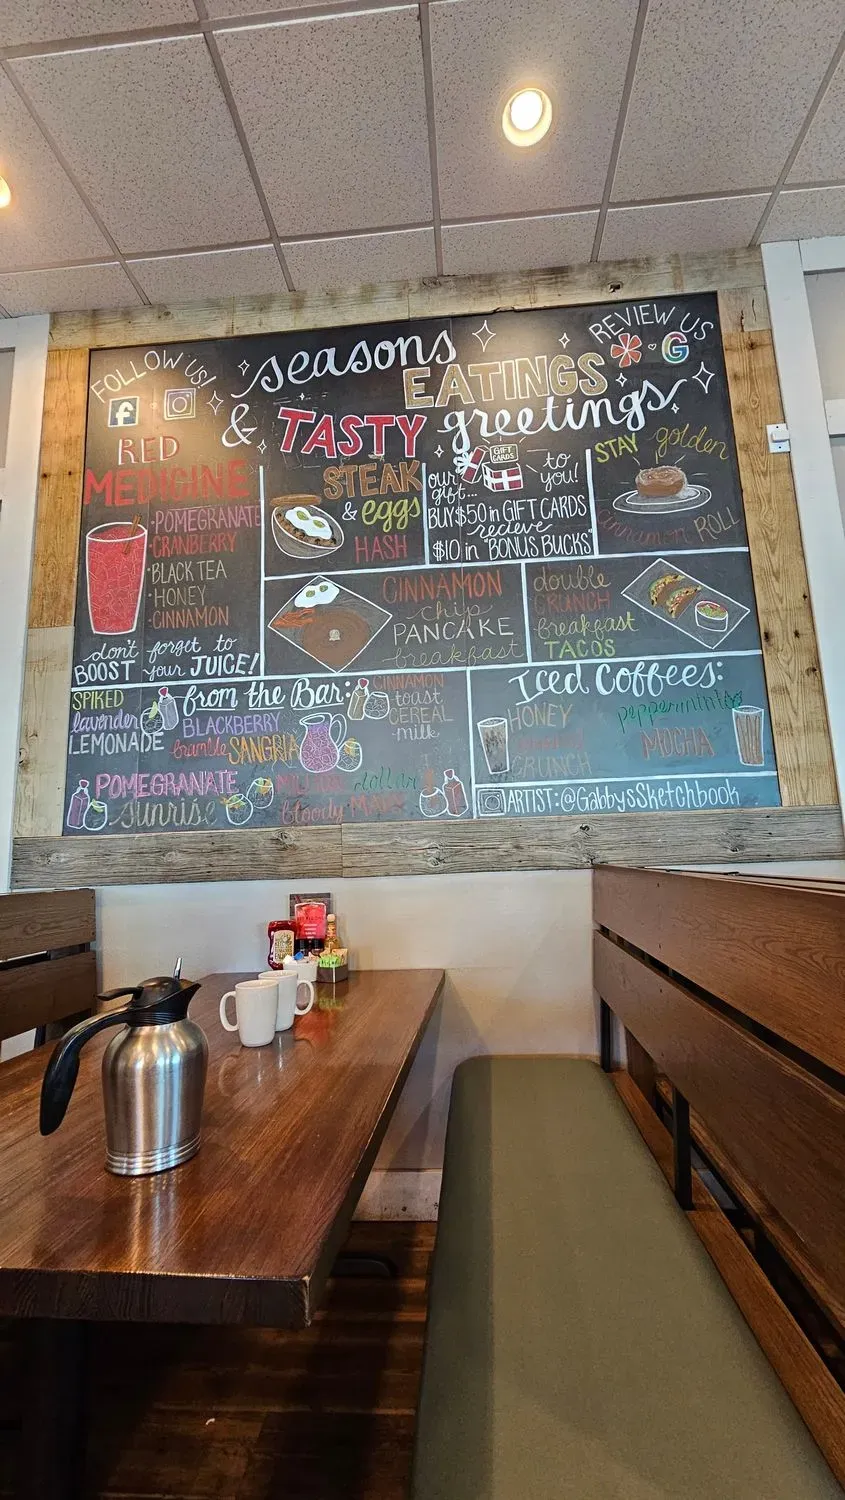 FOLLOW US!
REVIEW US
seasons
EATINGS
& TASTY greetings
f
G
RED
MEDICINE
•POMEGRANATE
CRANBERRY
•BLACK TEA
•HONEY
•CINNAMON
don't forget to
BOOST your JUICE!
STEAK
& eggs
HASH
GIFT
CARDS
our gift...
to you!
BUY $50 in GIFT CARDS
recieve
$10 in "BONUS BUCKS"
STAY golden
cinnamon ROLL
CINNAMON
chip
PANCAKE
breakfast
double
CRUNCH
breakfast
TACOS
from the Bar:
SPIKED
lavender
LEMONADE
BLACKBERRY
bramble SANGRIA
CINNAMON
toast
CEREAL
milk
POMEGRANATE
sunrise
dollar
bloody MARY
Iced Coffees:
HONEY
CRUNCH
peppermint
MOCHA
ARTIST: @GabbysSketchbook